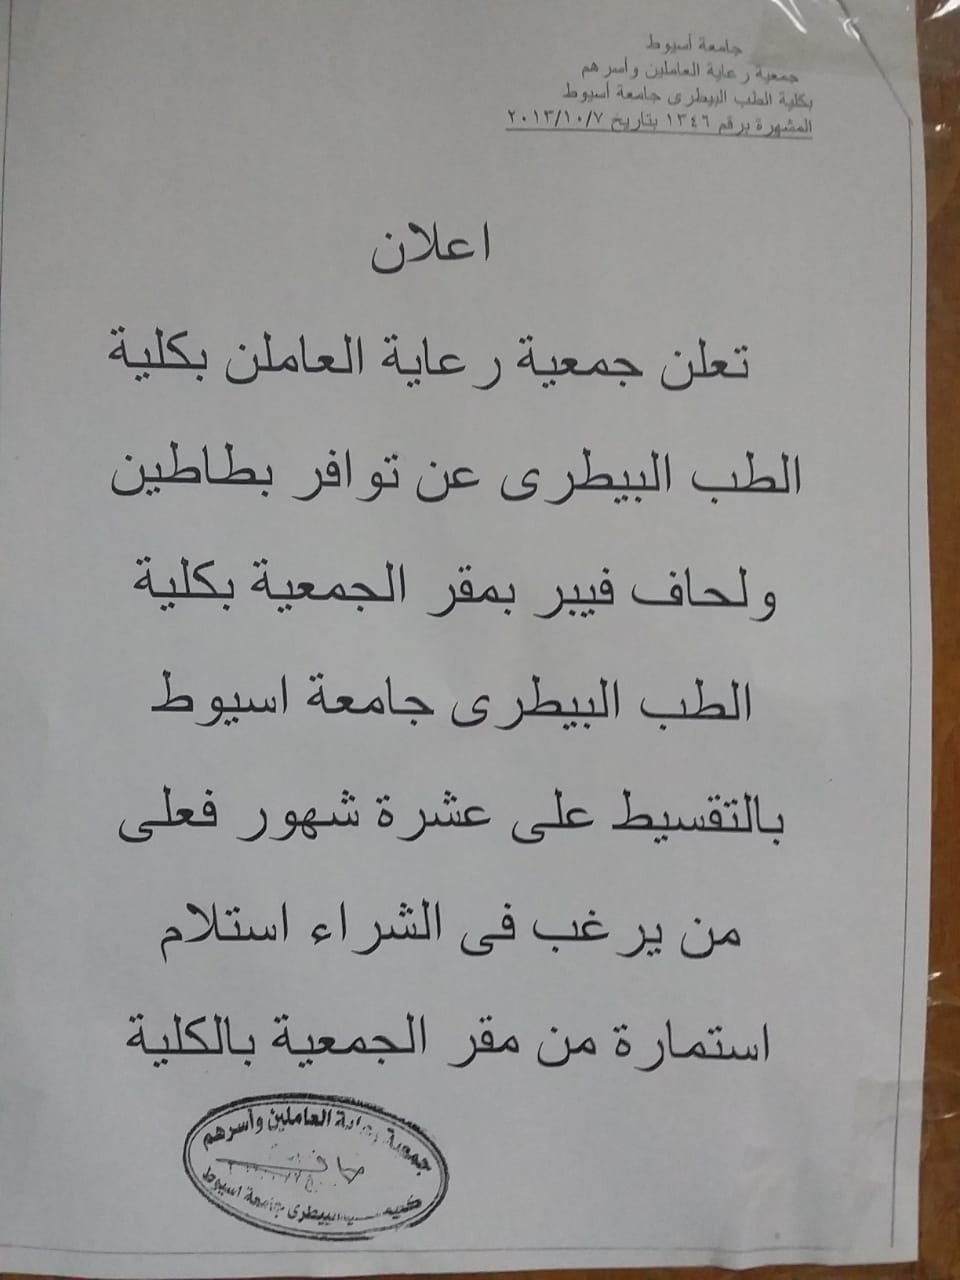 جامعة أسيوط
جمعية رعاية العاملين وأسرهم
بكلية الطب البيطرى جامعة أسيوط
المشهرة برقم ١٣٤٦ بتاريخ ٢٠١٣/١٠/٧
اعلان
تعلن جمعية رعاية العاملن بكلية
الطب البيطرى عن توافر بطاطين
ولحاف فيبر بمقر الجمعية بكلية
الطب البيطرى جامعة اسيوط
بالتقسيط على عشرة شهور فعلى
من يرغب فى الشراء استلام
استمارة من مقر الجمعية بالكلية
جمعية رعاية العاملين وأسرهم
البيطرى جامعة اسيوط